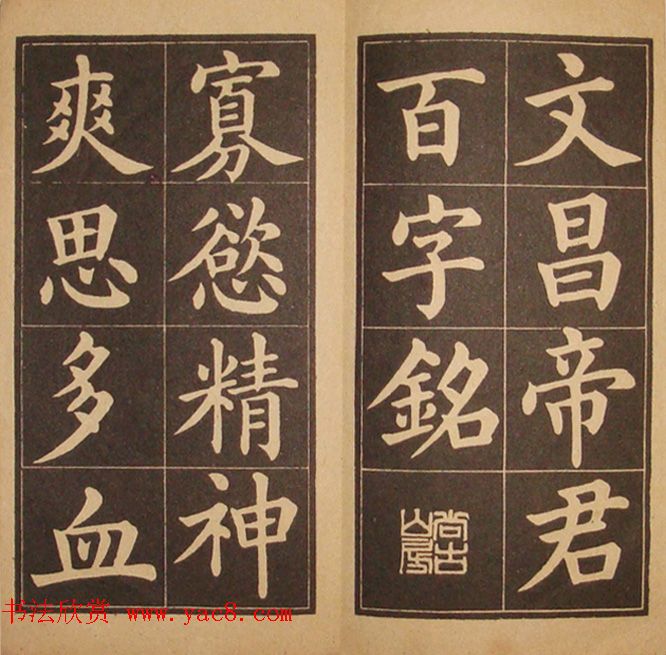 文昌帝君
百字銘
尚古山房
寡慾精神
爽思多血
书法欣赏 www.yac8.com